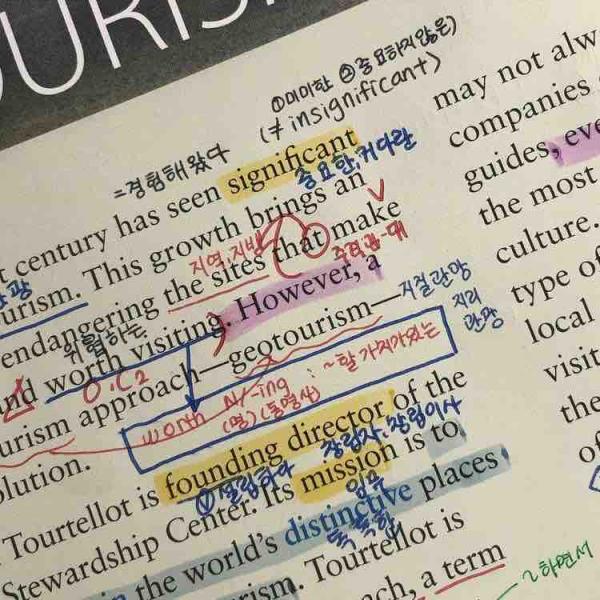 OURISM
①미미한 ②중요하지않은)
(≠insignificant>
=경험해왔다
century has seen significant
중요한, 커다란
urism. This growth brings an
지역,지방
주격관·대
endangering the sites that make
위협하는
and worth visiting. However, a
urism approach—geotourism—
지절관망
지리
관광
O.C2
worth N/-ing : ~할 가치가있는
(명) (동명사)
olution.
Tourtellot is founding director of the
설립하다
창립자, 창립이사
Stewardship Center. Its mission is to
임무
in the world's distinctive places
독특한
urism. Tourtellot is
ach, a term
~하면서
may not alw
companies
guides, eve
the most
culture.
type of
local
visit
the
of